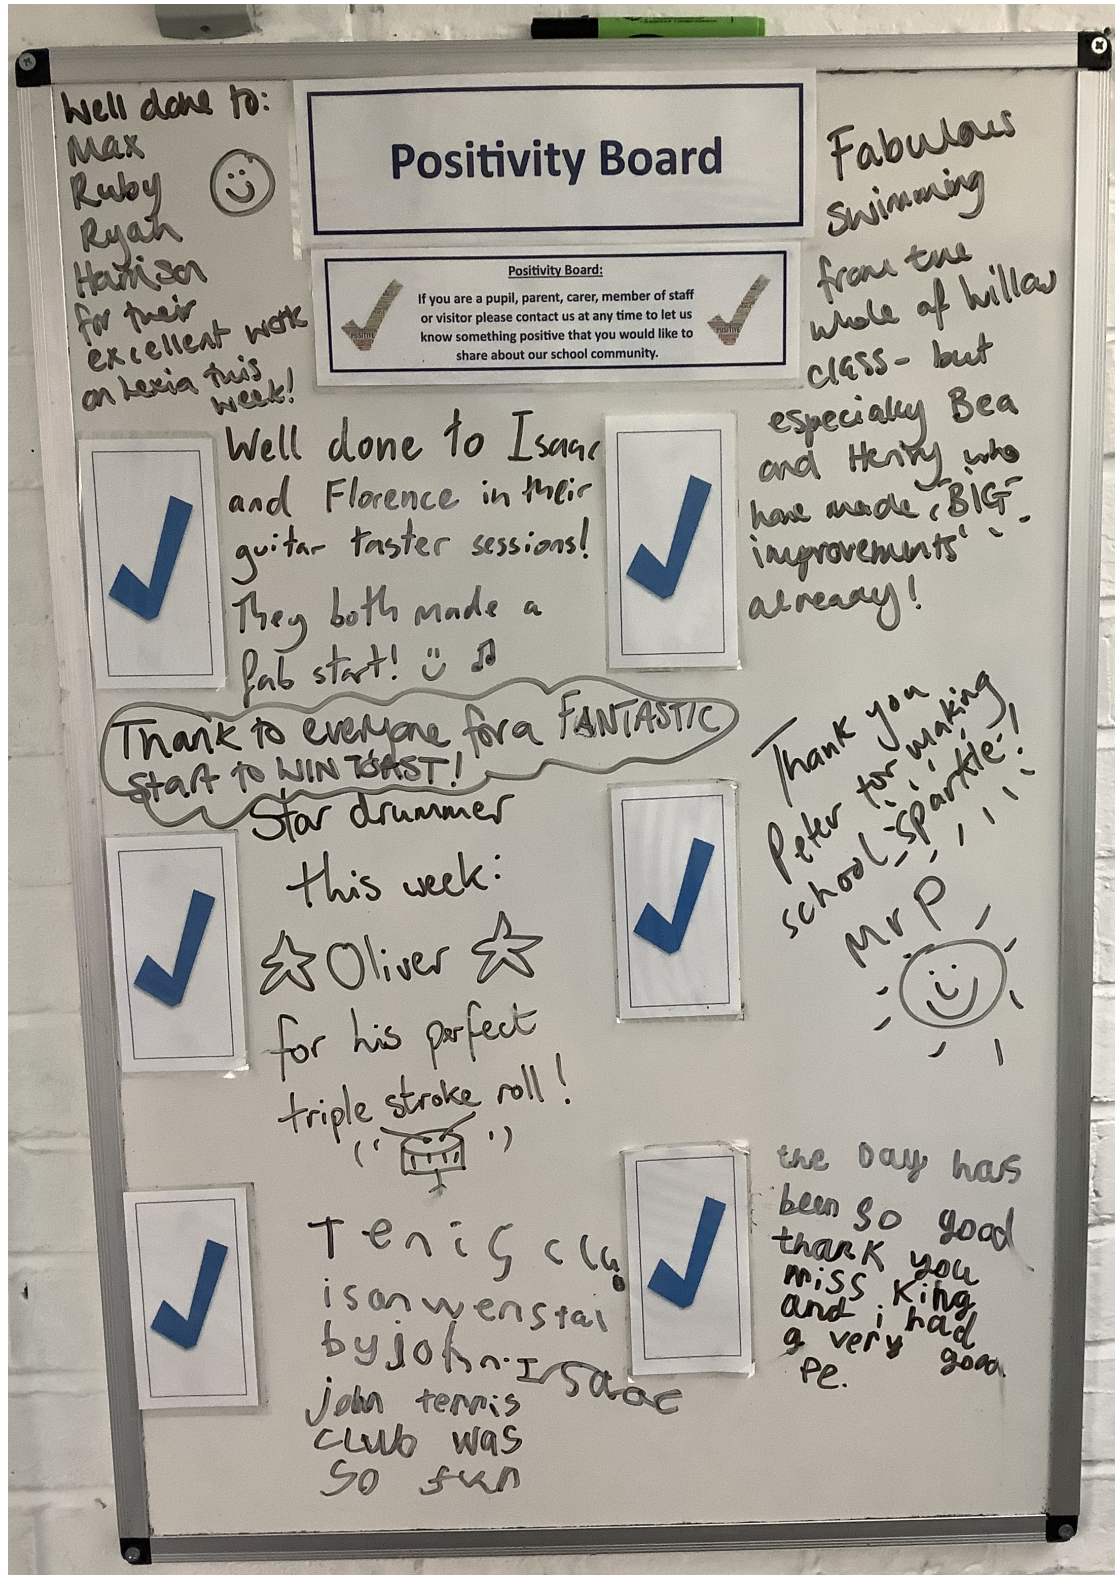 Well done to:
Max
Ruby
Ryan
Harrison
for their
excellent work
on Lexia this
week!
Positivity Board
Positivity Board:
If you are a pupil, parent, carer, member of staff
or visitor please contact us at any time to let us
know something positive that you would like to
share about our school community.
Fabulous
swimming
from the
whole of Willow
class - but
especialy Bea
and Henry who
have made "BIG
improvements"
already!
Well done to Isaac
and Florence in their
guitar taster sessions!
They both made a
fab start!
Thank to everyone for a FANTASTIC
start to WIN TOAST!
Thank you
Peter for making
school sparkle!
Mr P
Star drummer
this week:
Oliver
for his perfect
triple stroke roll!
Tenis club
is on wenstai
by john. Isaac
john tennis
club was
so fun
the Day has
been so good
thank you
miss King
and i had
a very good
Pe.